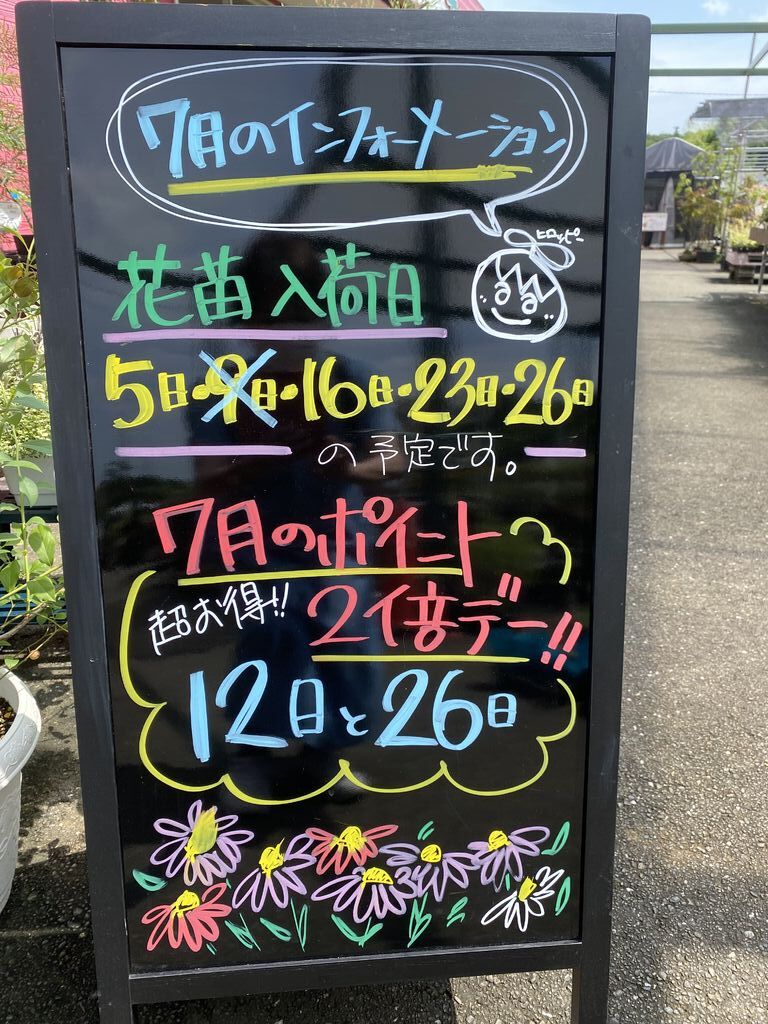 7月のインフォーメーション
ヒロッピー
花苗 入荷日
5日・9日・16日・23日・26日
の予定です。
7月のポイント
超お得!! 2倍デー!!
12日と26日